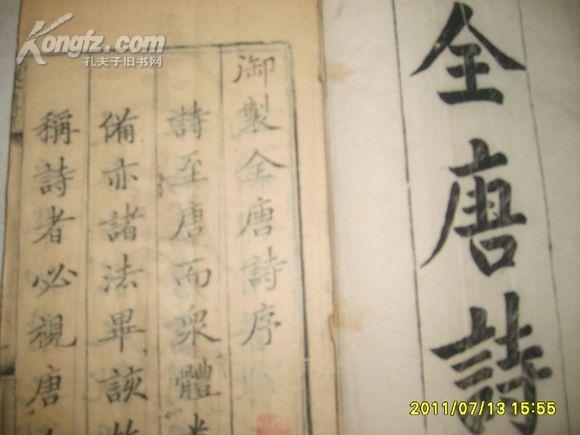 全唐詩
御製全唐詩序
詩至唐而眾體
備亦諸法畢該
稱詩者必視唐
Kongfz.com
孔夫子旧书网
2011/07/13 15:55